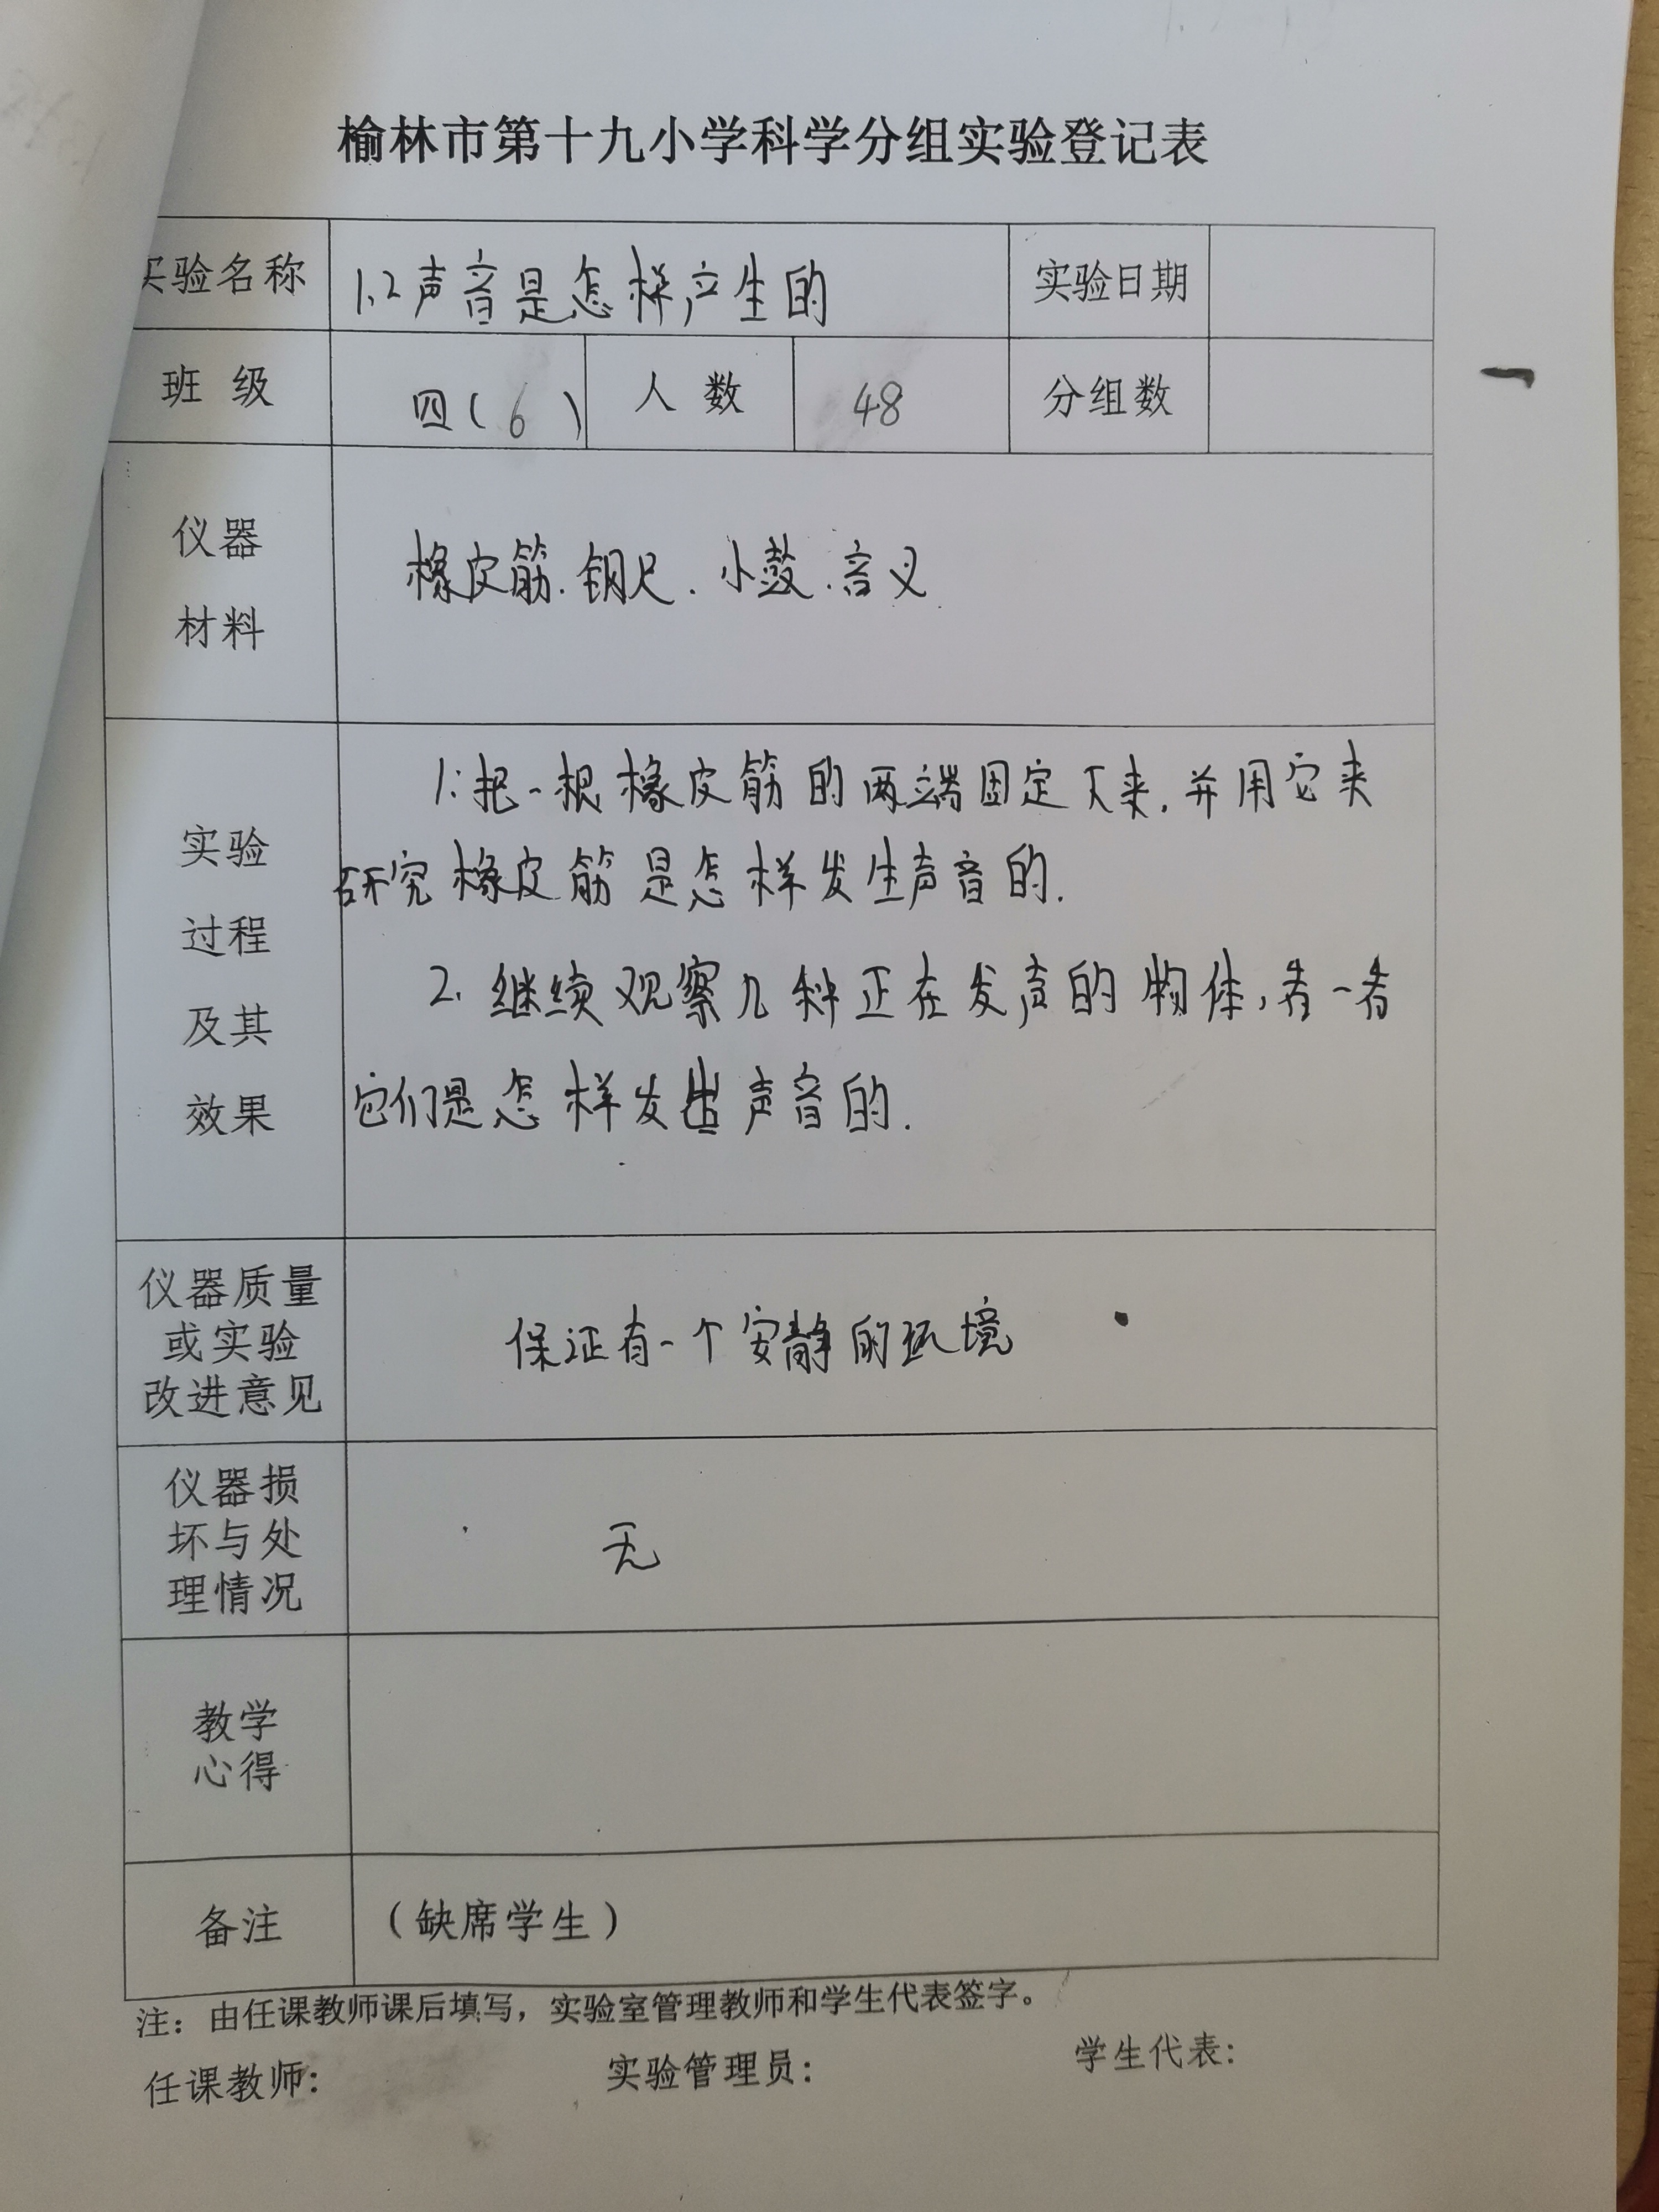 榆林市第十九小学科学分组实验登记表
实验名称 1.2声音是怎样产生的 实验日期
班 级 四(6) 人 数 48 分组数
仪器
材料
橡皮筋.钢尺.小鼓.音叉
实验
过程
及其
效果
1.把一根橡皮筋的两端固定下来,并用它来
研究橡皮筋是怎样发生声音的.
2.继续观察几种正在发声的物体,看一看
它们是怎样发出声音的.
仪器质量
或实验
改进意见
保证有一个安静的环境
仪器损
坏与处
理情况
无
教学
心得
备注 (缺席学生)
注：由任课教师课后填写，实验室管理教师和学生代表签字。
任课教师: 实验管理员: 学生代表: